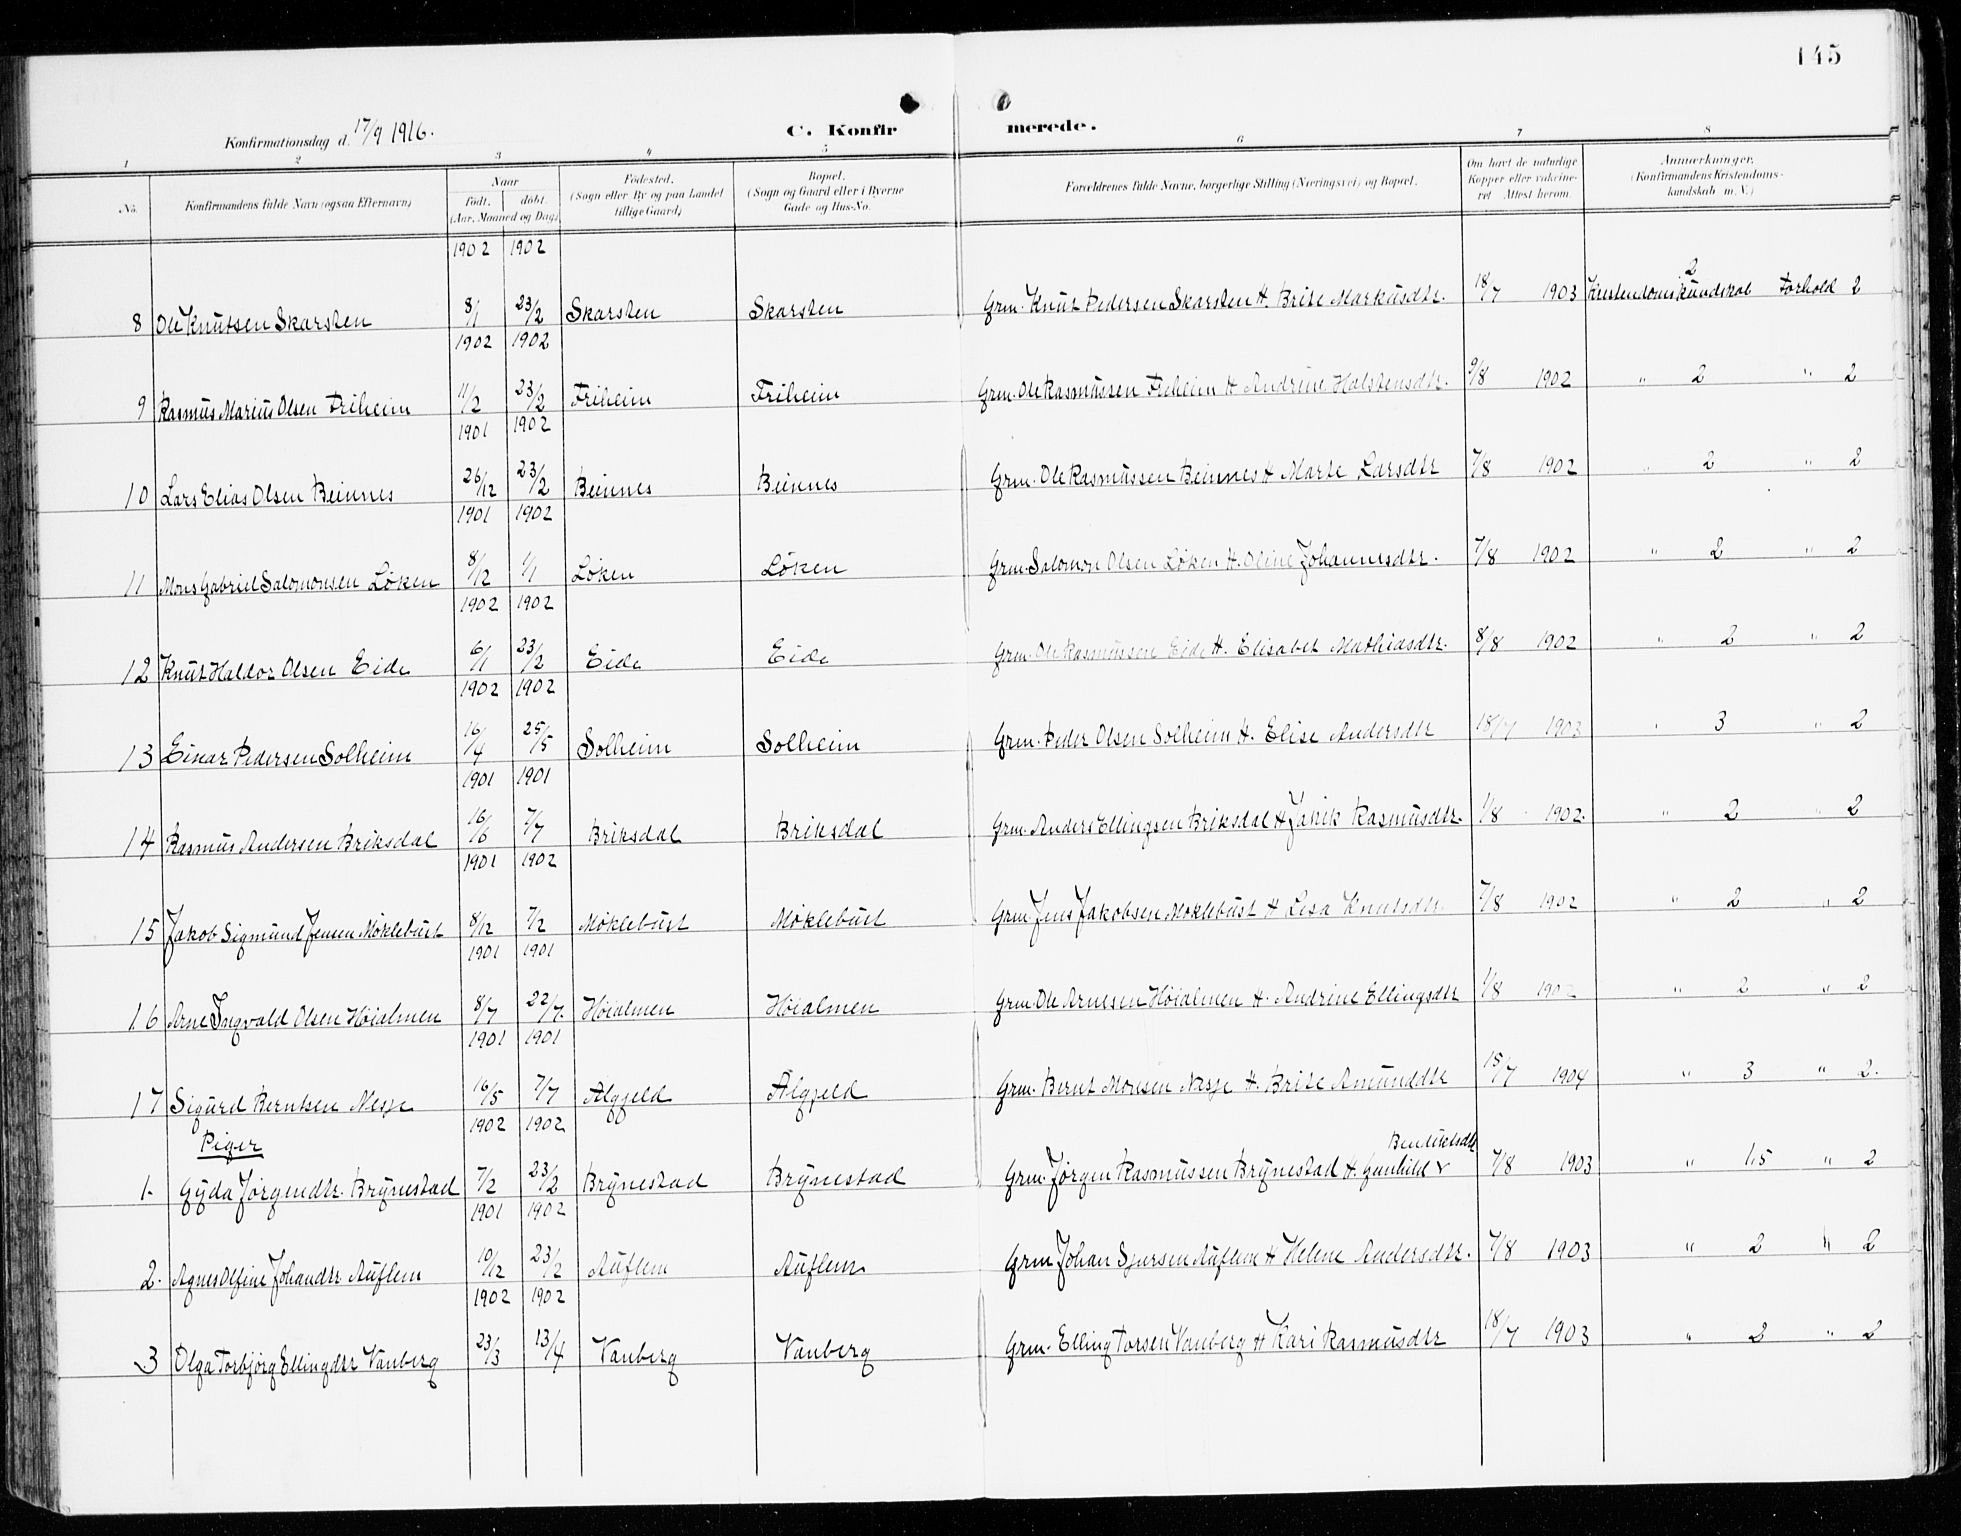 145
Konfirmationsdag d. 17/9 1916.
C. Konfirmerede.
1 2 3 4 5 6 7 8
No.
Konfirmandens fulde Navn (ogsaa Efternavn)
Naar født. døbt. (Aar, Maaned og Dag)
Fødested. (Sogn eller By og paa Landet tillige Gaard)
Bopæl. (Sogn og Gaard eller i Byerne Gade og Hus-No.
Forældrenes fulde Navne, borgerlige Stilling (Næringsvei) og Bopæl.
Om havt de naturlige Kopper eller vakcineret Attest herom.
Anmærkninger. (Konfirmandens Kristendomskundskab m. V.)
1902 1902
8 Ole Knutsen Skarsten 8/1 23/2 Skarsten Skarsten Grm. Knut Pedersen Skarsten H. Brite Markusdtr. 18/7 1903 Kristendomskundskab 2 Forhold 2
1902 1902
9 Rasmus Marius Olsen Friheim 11/2 23/2 Friheim Friheim Grm. Ole Rasmussen Friheim H Andrine Halstensdtr. 9/8 1902 " 2 " 2
1901 1902
10 Lars Elias Olsen Beinnes 26/12 23/2 Beinnes Beinnes Grm. Ole Rasmussen Beinnes H Marte Larsdtr 7/8 1902 " 2 " 2
1901 1902
11 Mons Gabriel Salomonsen Løken 8/12 1/1 Løken Løken Grm. Salomon Olsen Løken H. Oline Johannesdtr. 7/8 1902 " 2 " 2
1902 1902
12 Knut Haldor Olsen Eide 6/1 23/2 Eide Eide Grm. Ole Rasmussen Eide H. Elisabet Mathiasdtr. 8/8 1902 " 2 " 2
1902 1902
13 Einar Pedersen Solheim 16/4 25/5 Solheim Solheim Grm. Peder Olsen Solheim H. Elise Andersdtr 18/7 1903 " 3 " 2
1901 1901
14 Rasmus Andersen Briksdal 16/6 7/7 Briksdal Briksdal Grm. Anders Ellingsen Briksdal H Rasmusdtr. 1/8 1902. " 2 " 2
1901 1902
15 Jakob Sigmund Jensen Møklebust 8/12 7/2 Møklebust Møklebust Grm. Jens Jakobsen Møklebust H Lisa Knutsdtr. 7/8 1902 " 2 " 2
1901 1901
16 Arne Ingvald Olsen Høialmen 8/7 22/7. Høialmen Høialmen Grm. Ole Arnesen Høialmen H. Andrine Ellingsdtr 1/8 1902 " 2 " 2
1901 1901
17 Sigurd Berntsen Nesje 16/5 7/7 Algjeld Algjeld Grm. Bernt Monsen Nesje H. Brite Amunddtr 15/7 1904 " 3 " 2.
Piger
1902 1902
1. Gyda Jørgendtr. Brynestad 7/2 23/2 Brynestad Brynestad Grm. Jørgen Rasmussen Brynestad H. Gunhild Bendiktsdtr 7/8 1903 " 1,5 " 2
1901 1902
2. Agnes Olfine Johandtr Auflem 10/12 23/2 Auflem Auflem Grm Johan Sjursen Auflem H Helene Andersdtr. 7/8 1903 " 2 " 2
1902 1902
3 Olga Torbjørg Ellingdtr Vanberg 23/3 13/4 Vanberg Vanberg Grm. Elling Torsen Vanberg H Kari Rasmusdtr 18/7 1903 " 2 " 2